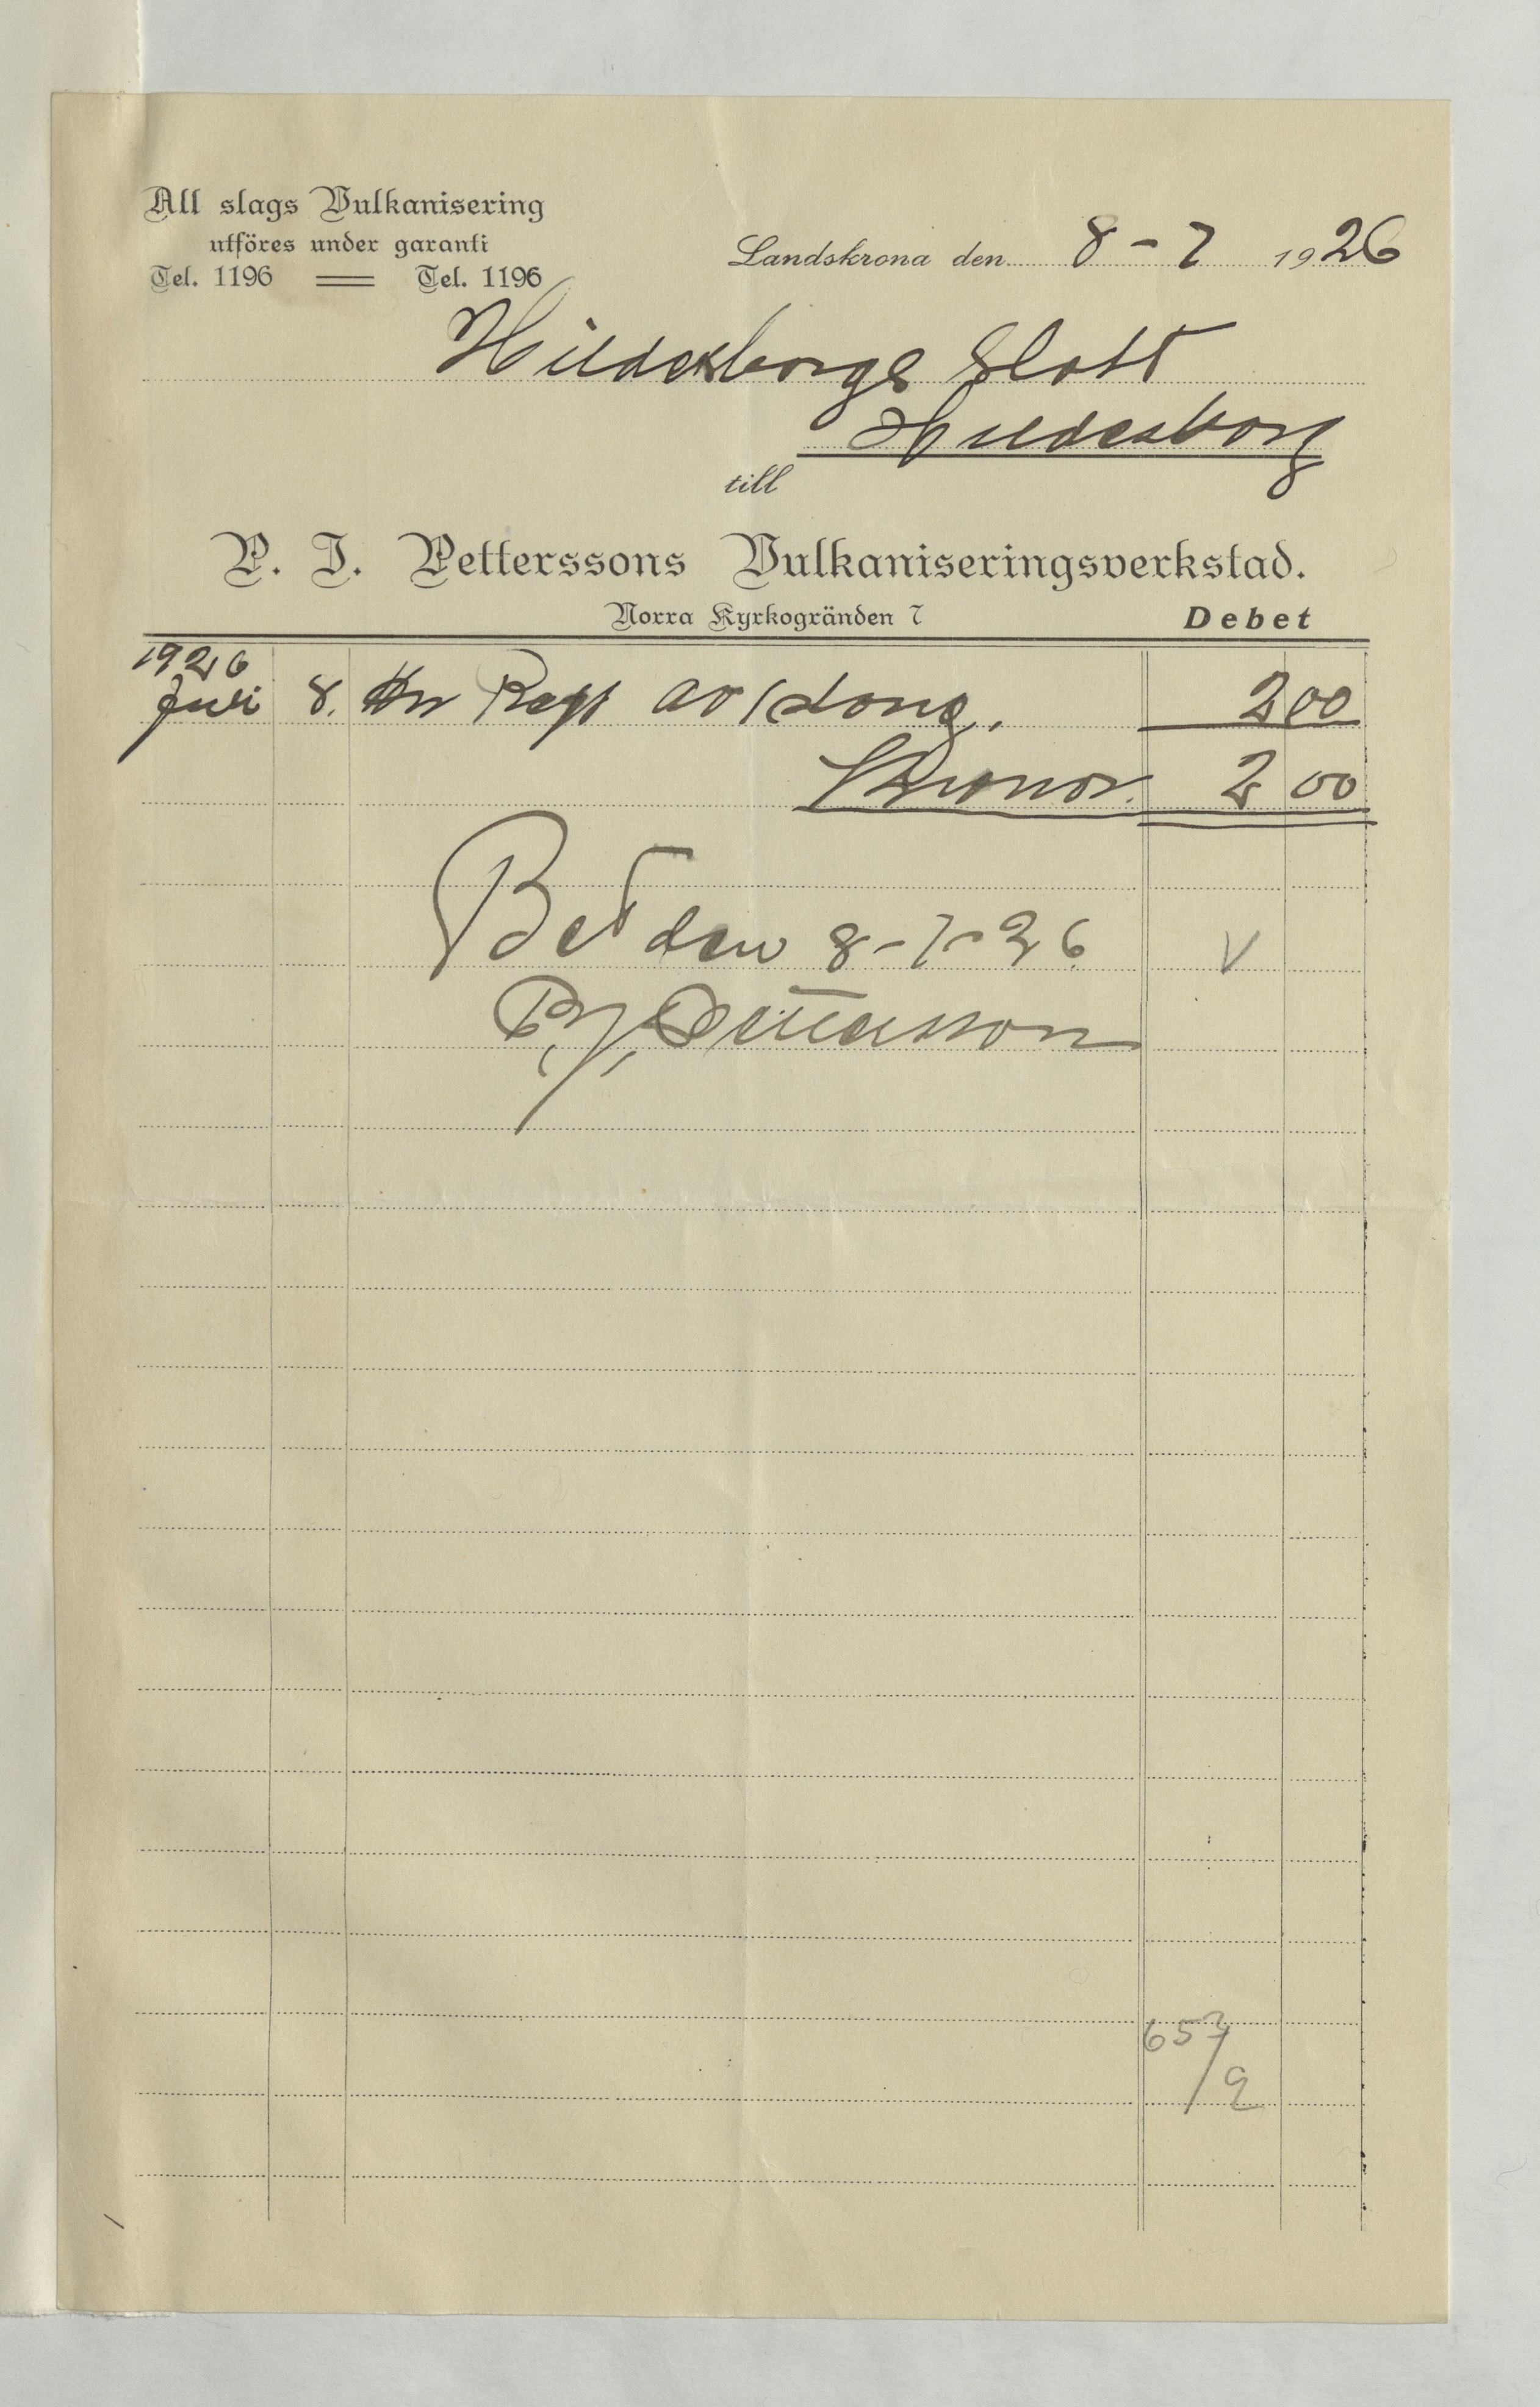 All slags Vulkanisering
utföres under garanti
Tel. 1196 Tel. 1196
Landskrona den 8-7 1926
Hildesborgs Slott
Hildesborg
till
P. J. Petterssons Vulkaniseringsverkstad.
Norra Kyrkogränden 7 Debet
1926
Juli 8. Rep av slang. 2 00
Kronor. 2 00
Bet den 8-7-26 V
P. J. Pettersson
657
/2